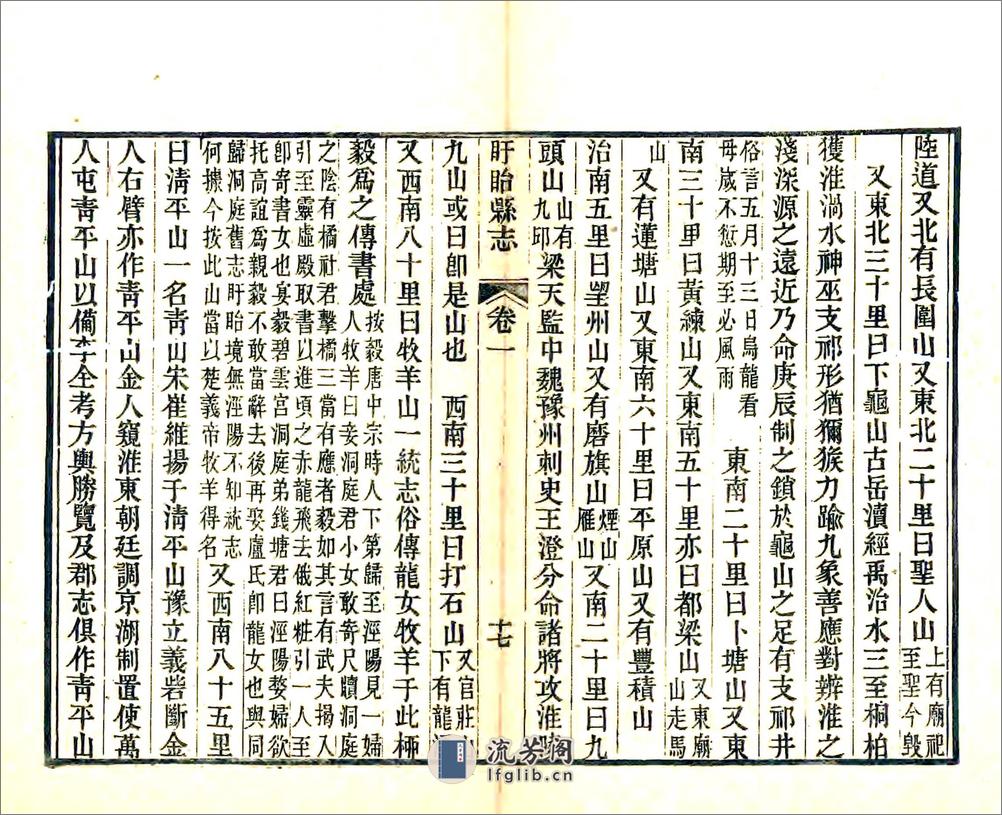 陸道又北有長圍山又東北二十里曰聖人山上有廟祀至聖今毀
又東北三十里曰下龜山古岳瀆經禹治水三至桐柏
獲淮渦水神巫支祁形猶獼猴力踰九象善應對辨淮之
淺深源之遠近乃命庚辰制之鎖於龜山之足有支祁井
俗言五月十三日烏龍看母歲不愆期至必風雨 東南二十里曰卜塘山又東
南三十里曰黃練山又東南五十里亦曰都梁山又東廟山走馬
山 又有蓮塘山又東南六十里曰平原山又有豐積山
治南五里曰朢州山又有磨旗山煙山雁山又南二十里曰九
頭山山有九邱梁天監中魏豫州刺史王澄分命諸將攻淮陵
盱眙縣志 卷一 十七
九山或曰卽是山也 西南三十里曰打石山又官莊山下有龍
又西南八十里曰牧羊山一統志俗傳龍女牧羊于此柳
毅爲之傳書處按毅唐中宗時人下第歸至涇陽見一婦人牧羊曰妾洞庭君小女敢寄尺牘洞庭
之陰有橘社君擊橘三當有應者毅如其言有武夫揭入引至靈虛殿取書進頃之赤龍飛去俄紅粧引一人至
卽寄書女也宴毅碧雲宮洞庭弟錢塘君曰涇陽婺婦欲托高誼爲親毅不敢當辭去後再娶盧氏卽龍女也與同
歸洞庭舊志盱眙境無涇陽不知統志何據今按此山當以楚義帝牧羊得名又西南八十五里
曰淸平山一名靑山宋崔維揚于淸平山豫立義砦斷金
人右臂亦作靑平山金人窺淮東朝廷調京湖制置使萬
人屯靑平山以僃李全考方輿勝覽及郡志俱作靑平山
流芳閣
lfglib.cn